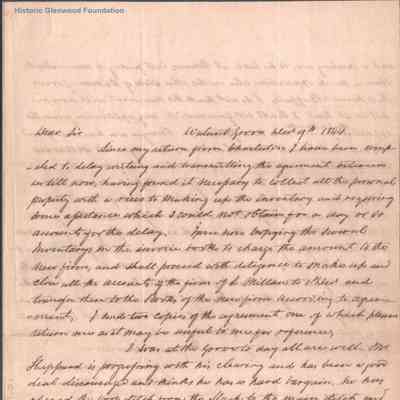 Historic Glenwood Foundation
Dear Sir Walnut Grove 9th 1844.
Since my return from Charleston I have been comp
-eled to delay writing and transmitting the agreement
until now, having found it necessary to collect all the personal
property with a view to making up the inventory and requiring
some assistance which I could not obtain for a day or so
accounts for the delay. I am now copying the several
Inventorys in the invoice books to charge the amount to the
New firm, and shall proceed with diligence to make up and
close all the accounts of the firm of
transfer them to the Books of the New firm according to agree-
ment. I send two copies of the agreement one of which please
return me as it may be useful to me for reference,
I was at the Grove to day all are well. Mr
Sheppard is progressing with his clearing and has been a good
deal discouraged and thinks he has a hard bargain, he has
the ditch from the to the